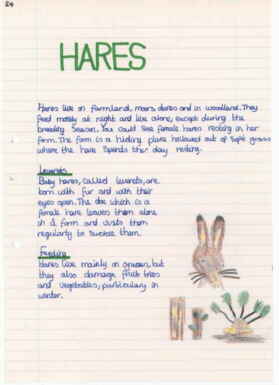 24
HARES
Hares live on farmland, moors, dunes and in woodland. They
feed mostly at night and live alone, except during the
breeding season. You could see female hares resting in her
form. The form is a hiding place hollowed out of grass
where the hare spends the day resting.
Leverets
Baby hares, called leverets, are
born with fur and with their
eyes open. The doe which is a
female hare leaves them alone
in a form and visits them
regularly to suckle them.
Feeding
Hares live mainly on grasses, but
they also damage fruit trees
and vegetables, particularly in
winter.